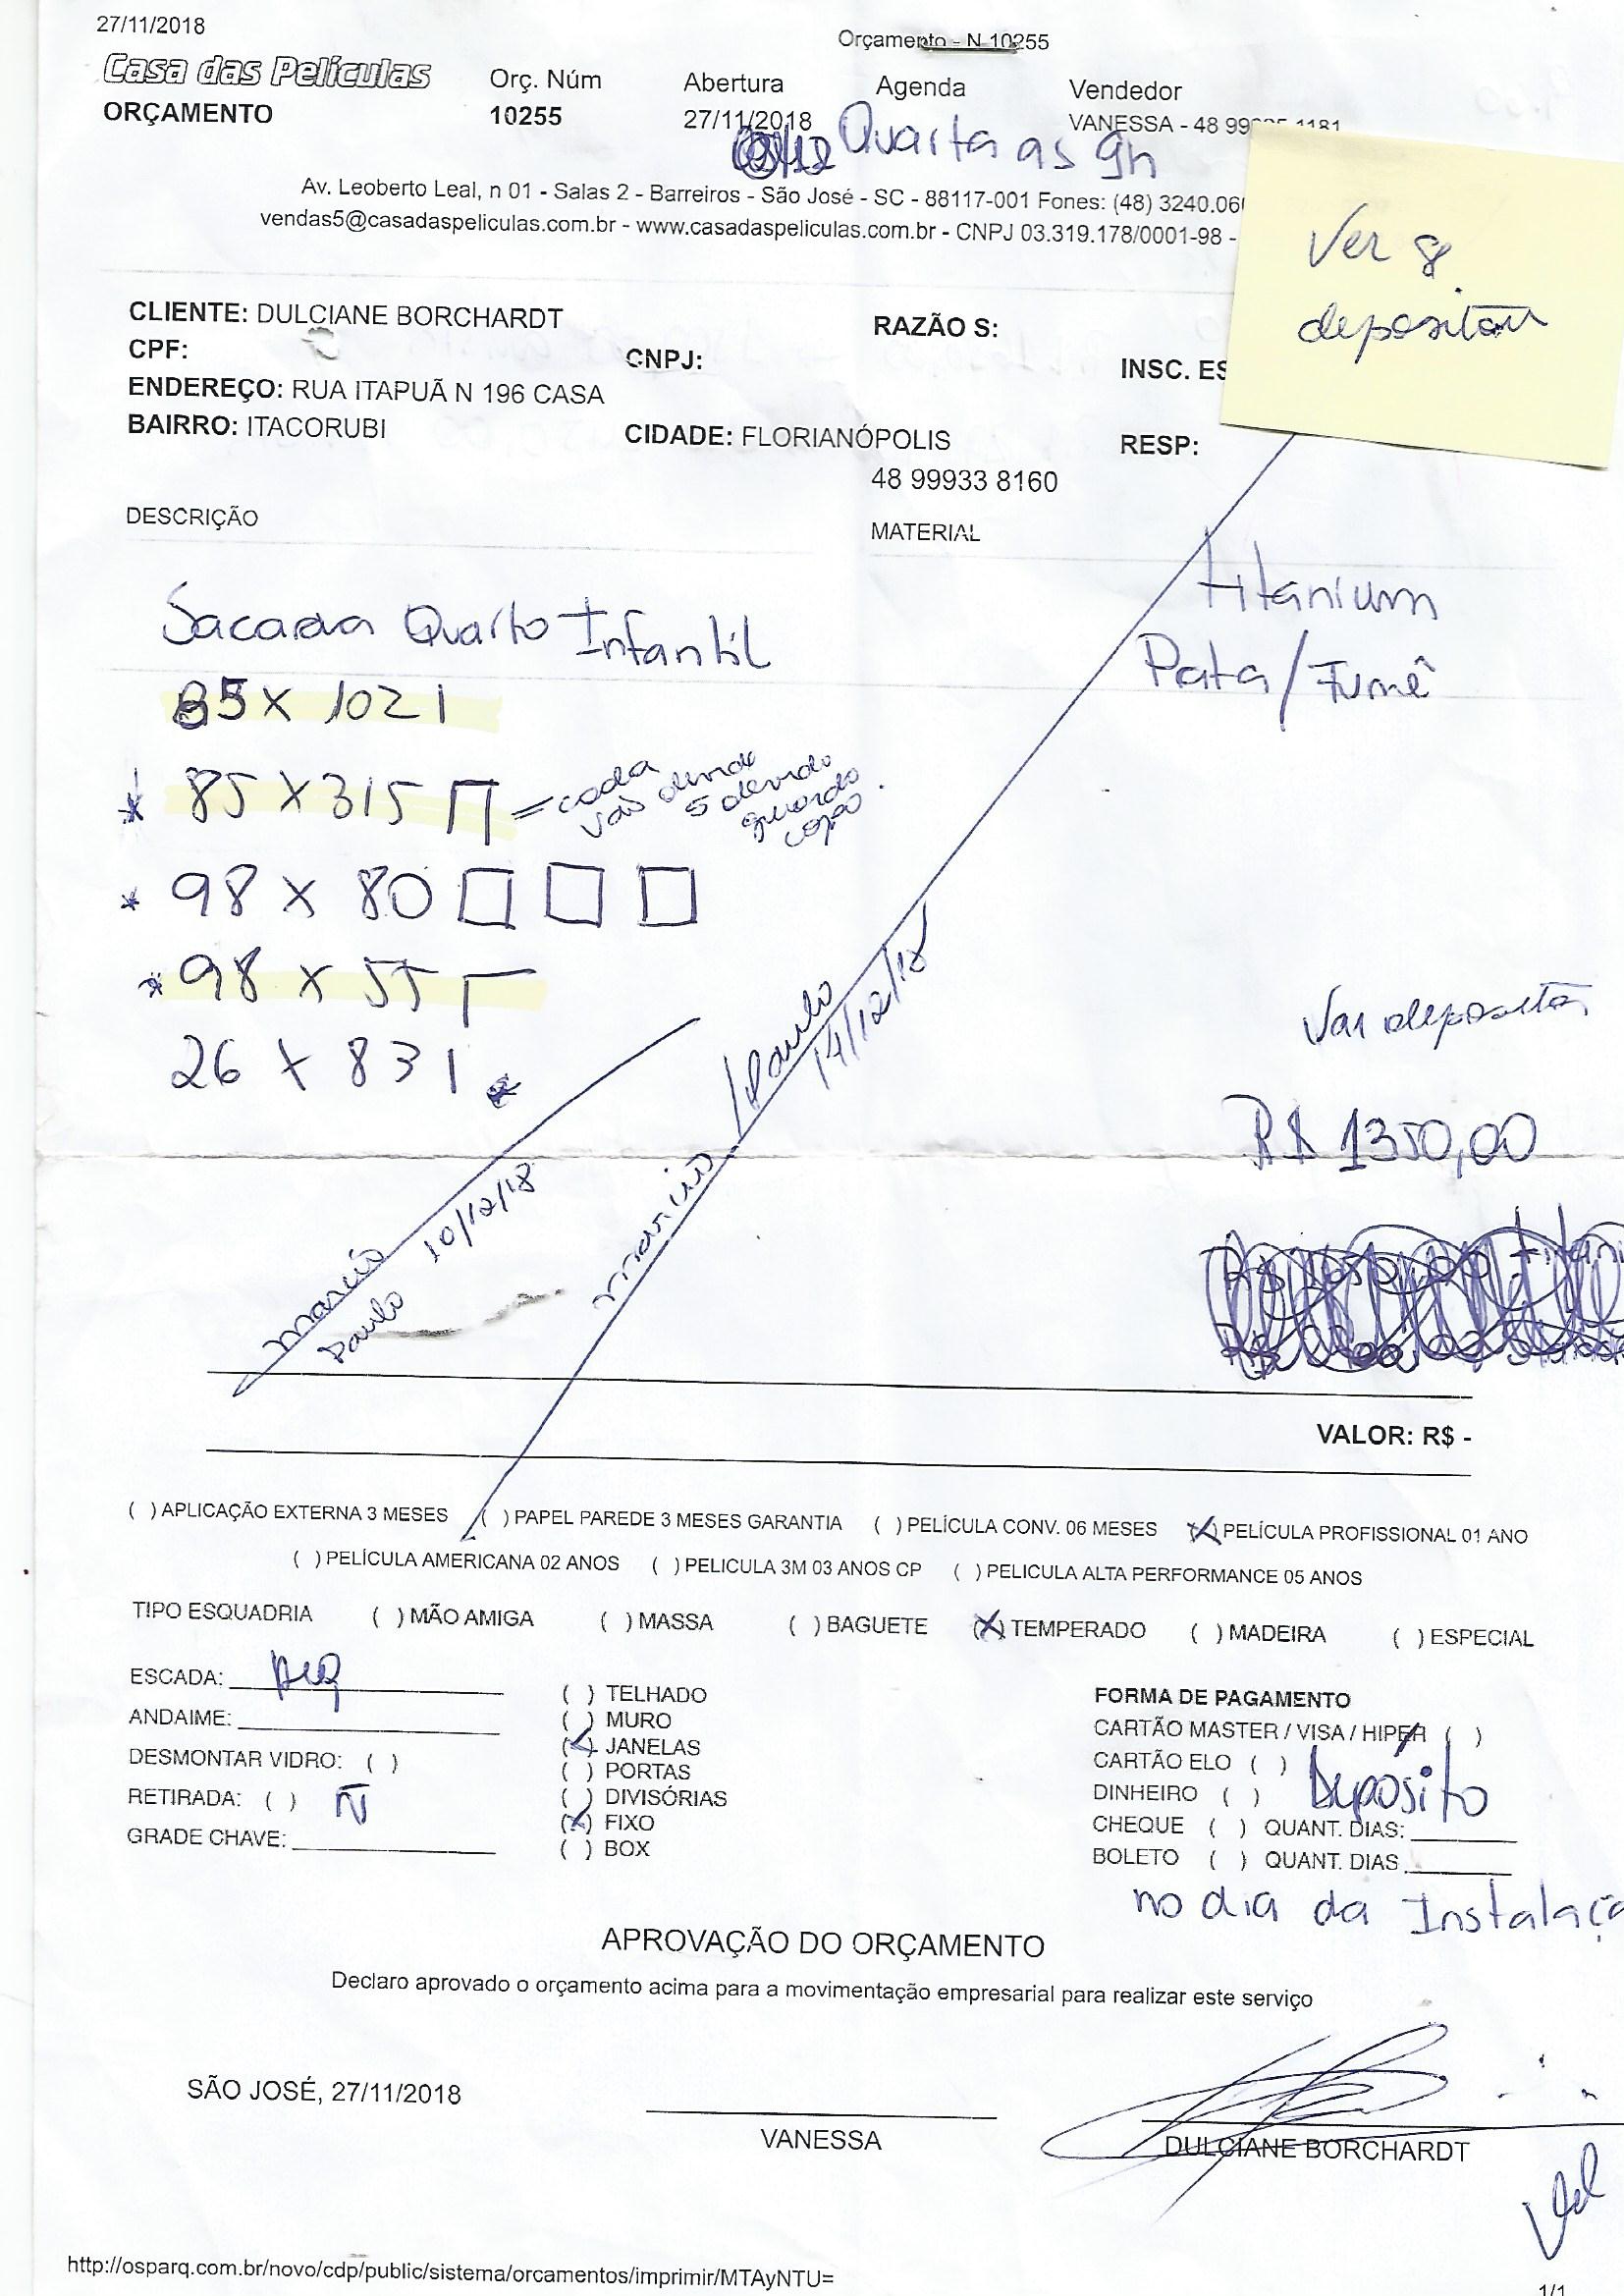 27/11/2018
Orçamento - N 10255
Casa das Películas
ORÇAMENTO
Orç. Núm
10255
Abertura
27/11/2018
Agenda
Quarta as 9h
Vendedor
VANESSA - 48 99
Av. Leoberto Leal, n 01 - Salas 2 - Barreiros - São José - SC - 88117-001 Fones: (48) 3240.06
vendas5@casadaspeliculas.com.br - www.casadaspeliculas.com.br - CNPJ 03.319.178/0001-98 -
Ver se
depositou
CLIENTE: DULCIANE BORCHARDT
RAZÃO S:
CPF:
CNPJ:
INSC. ES
ENDEREÇO: RUA ITAPUÃ N 196 CASA
BAIRRO: ITACORUBI
CIDADE: FLORIANÓPOLIS
RESP:
48 99933 8160
DESCRIÇÃO
MATERIAL
Sacada Quarto Infantil
titanium
Prata/Fumê
85 X 102 1
* 85 X 315 = cada
vão divide
5 devido
guarda
copo
* 98 x 80
* 98 x 55
26 x 83 1
Paulo
14/12/18
Vai depositar
R$ 1350,00
marcio
10/12/18
Paulo
VALOR: R$ -
( ) APLICAÇÃO EXTERNA 3 MESES ( ) PAPEL PAREDE 3 MESES GARANTIA ( ) PELÍCULA CONV. 06 MESES (X) PELÍCULA PROFISSIONAL 01 ANO
( ) PELÍCULA AMERICANA 02 ANOS ( ) PELICULA 3M 03 ANOS CP ( ) PELICULA ALTA PERFORMANCE 05 ANOS
TIPO ESQUADRIA ( ) MÃO AMIGA ( ) MASSA ( ) BAGUETE (X) TEMPERADO ( ) MADEIRA ( ) ESPECIAL
ESCADA:
ANDAIME:
DESMONTAR VIDRO: ( )
RETIRADA: ( ) Ñ
GRADE CHAVE:
( ) TELHADO
( ) MURO
(X) JANELAS
( ) PORTAS
( ) DIVISÓRIAS
(X) FIXO
( ) BOX
FORMA DE PAGAMENTO
CARTÃO MASTER / VISA / HIPER ( )
CARTÃO ELO ( )
DINHEIRO ( )
Depósito
CHEQUE ( ) QUANT. DIAS:
BOLETO ( ) QUANT. DIAS
no dia da Instalaçã
APROVAÇÃO DO ORÇAMENTO
Declaro aprovado o orçamento acima para a movimentação empresarial para realizar este serviço
SÃO JOSÉ, 27/11/2018
VANESSA
DULCIANE BORCHARDT
http://osparq.com.br/novo/cdp/public/sistema/orcamentos/imprimir/MTAyNTU=
1/1